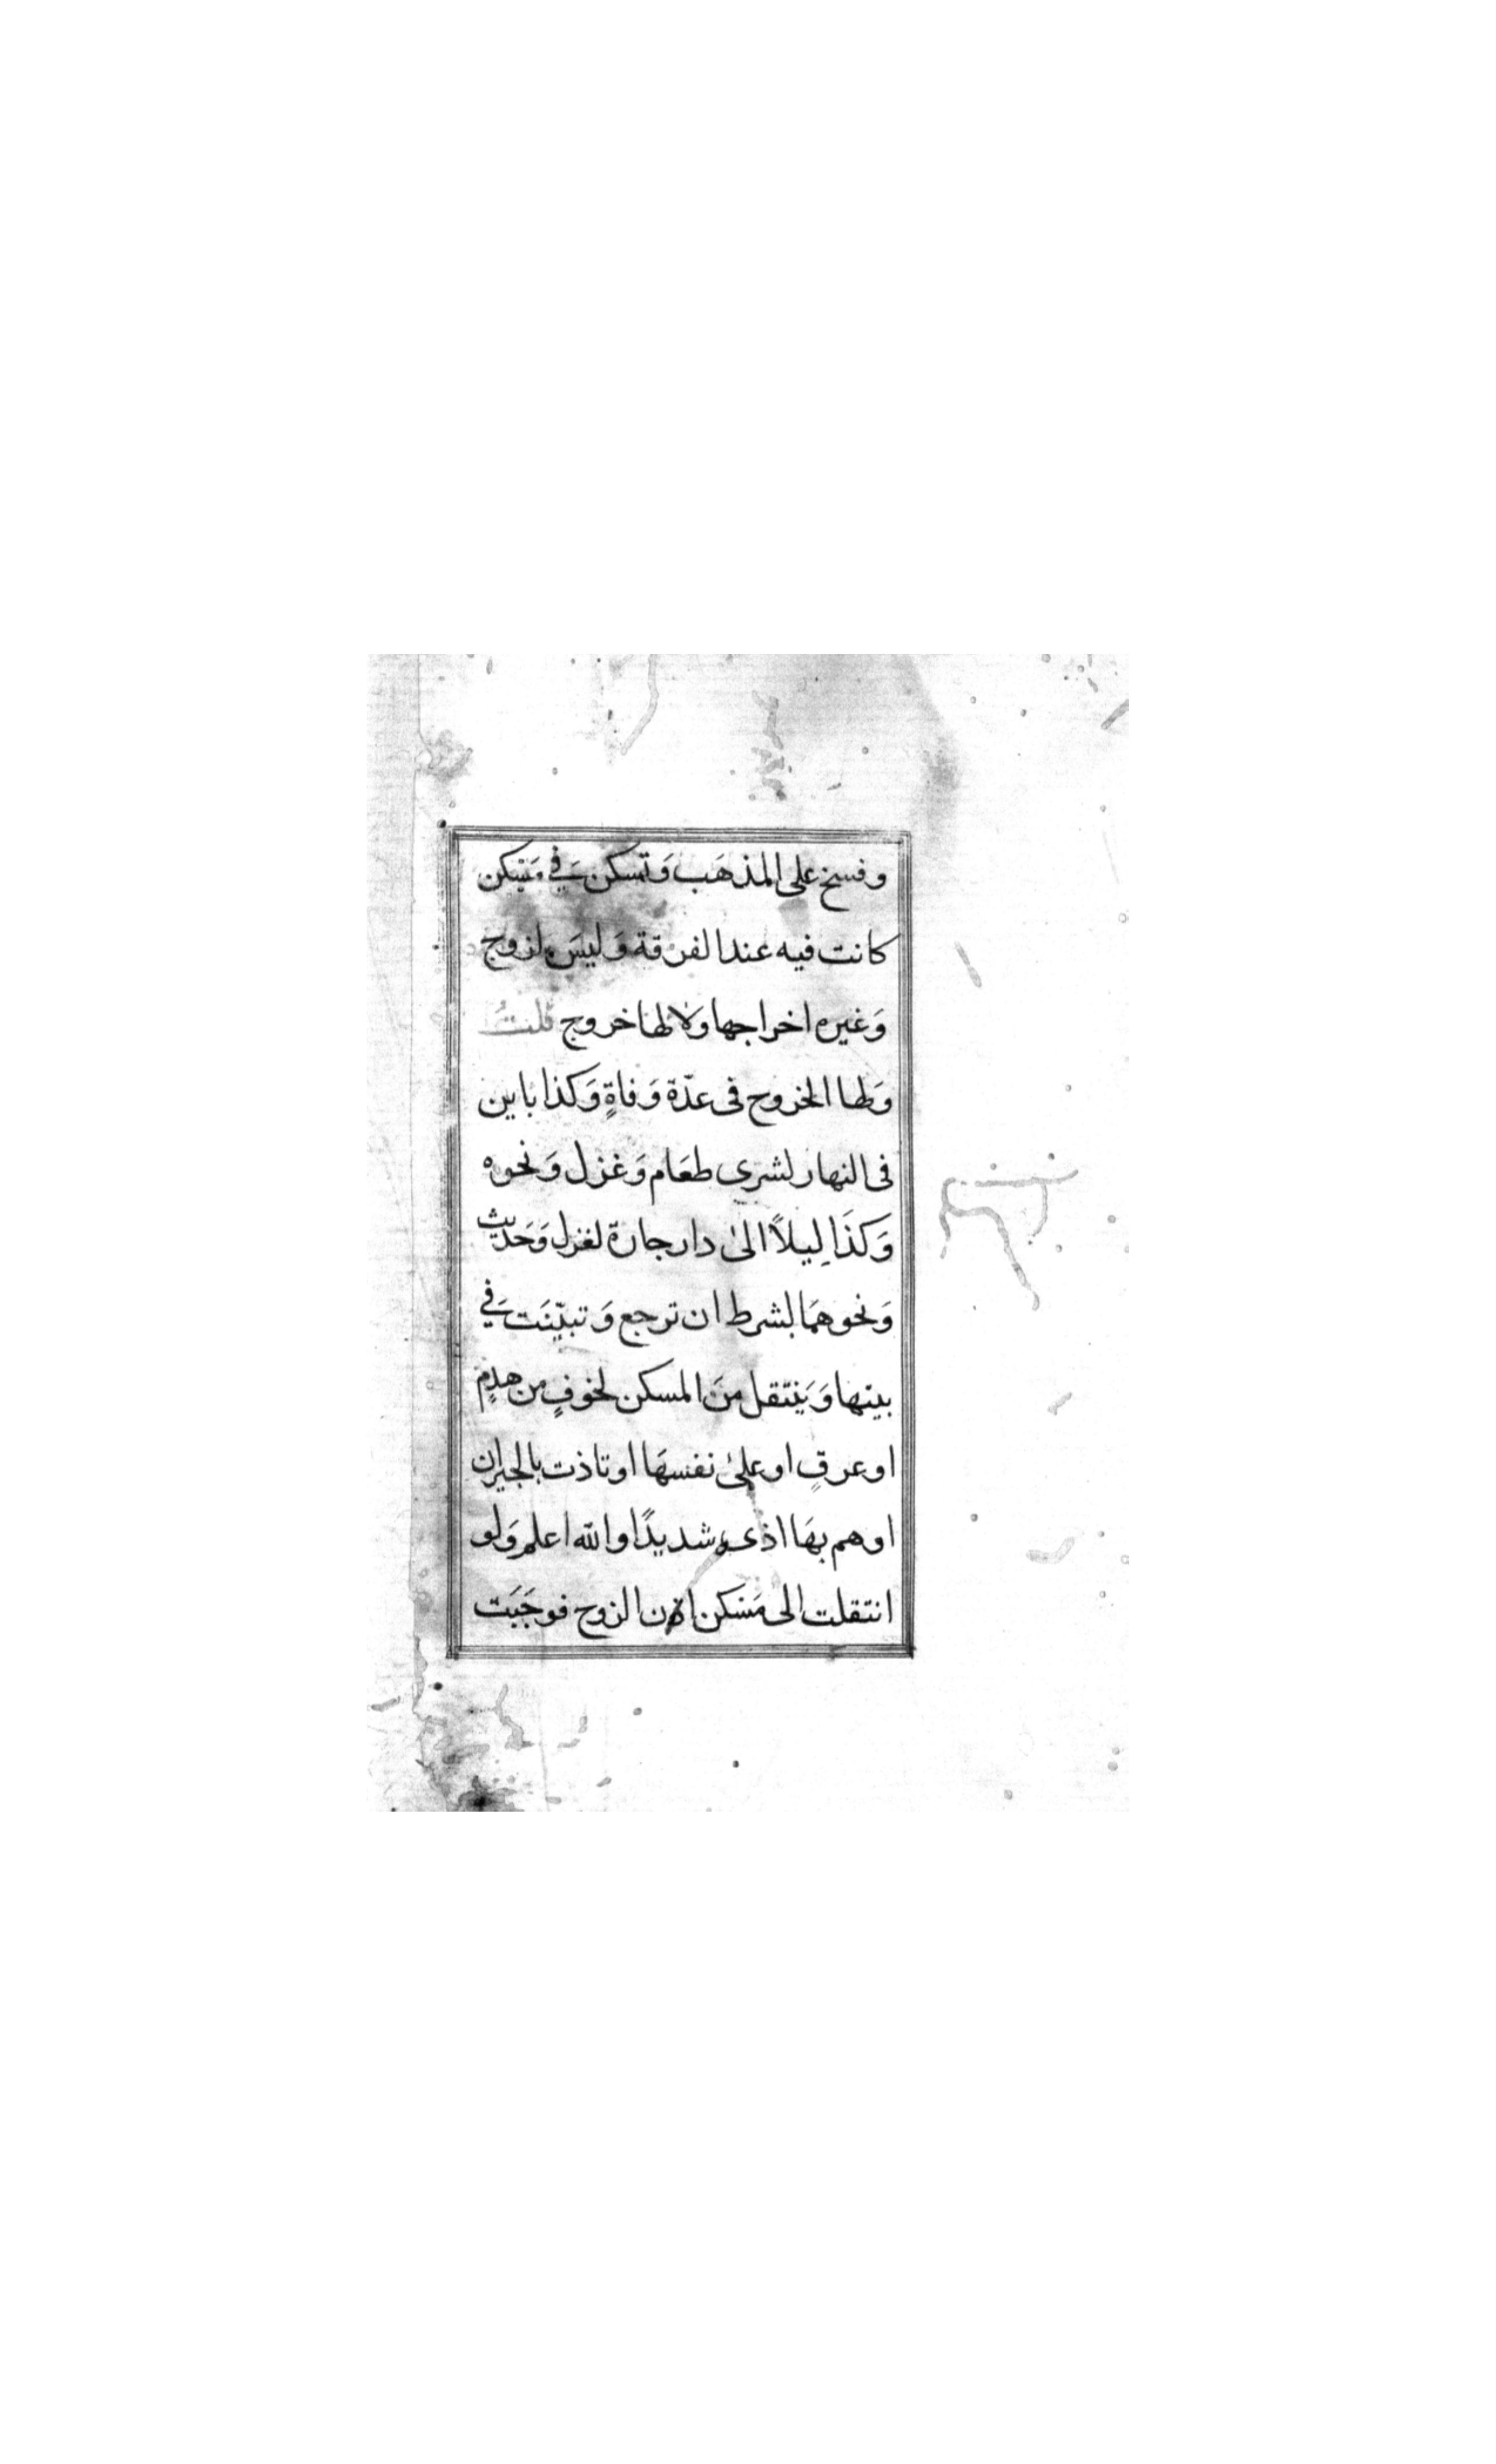 وفسخ على المذهَب وَتسكن في مَسْكن
كانت فيه عند الفرقة وَليسَ لزوج
وَغيره اخراجها ولا لها خروج قلتُ
وَلها الخروج فى عدّة وَفاةٍ وَكذا باين
فى النهار لشرى طعَام وَغزل وَنحوه
وَكذَا ليلاً الىٰ دار جارة لغزل وَحَديث
وَنحوهمَا بشرط ان ترجع وَتبيّنَت في
بيتها وَيَنتقل منَ المسكن لخوفٍ من هدمٍ
او عرقٍ او علىٰ نفسهَا او تاذت بالجيران
او هم بهَا اذى شديدًا والله اعلم وَلو
انتقلت الى مَسَكن اذن الزوج فوجَبَت